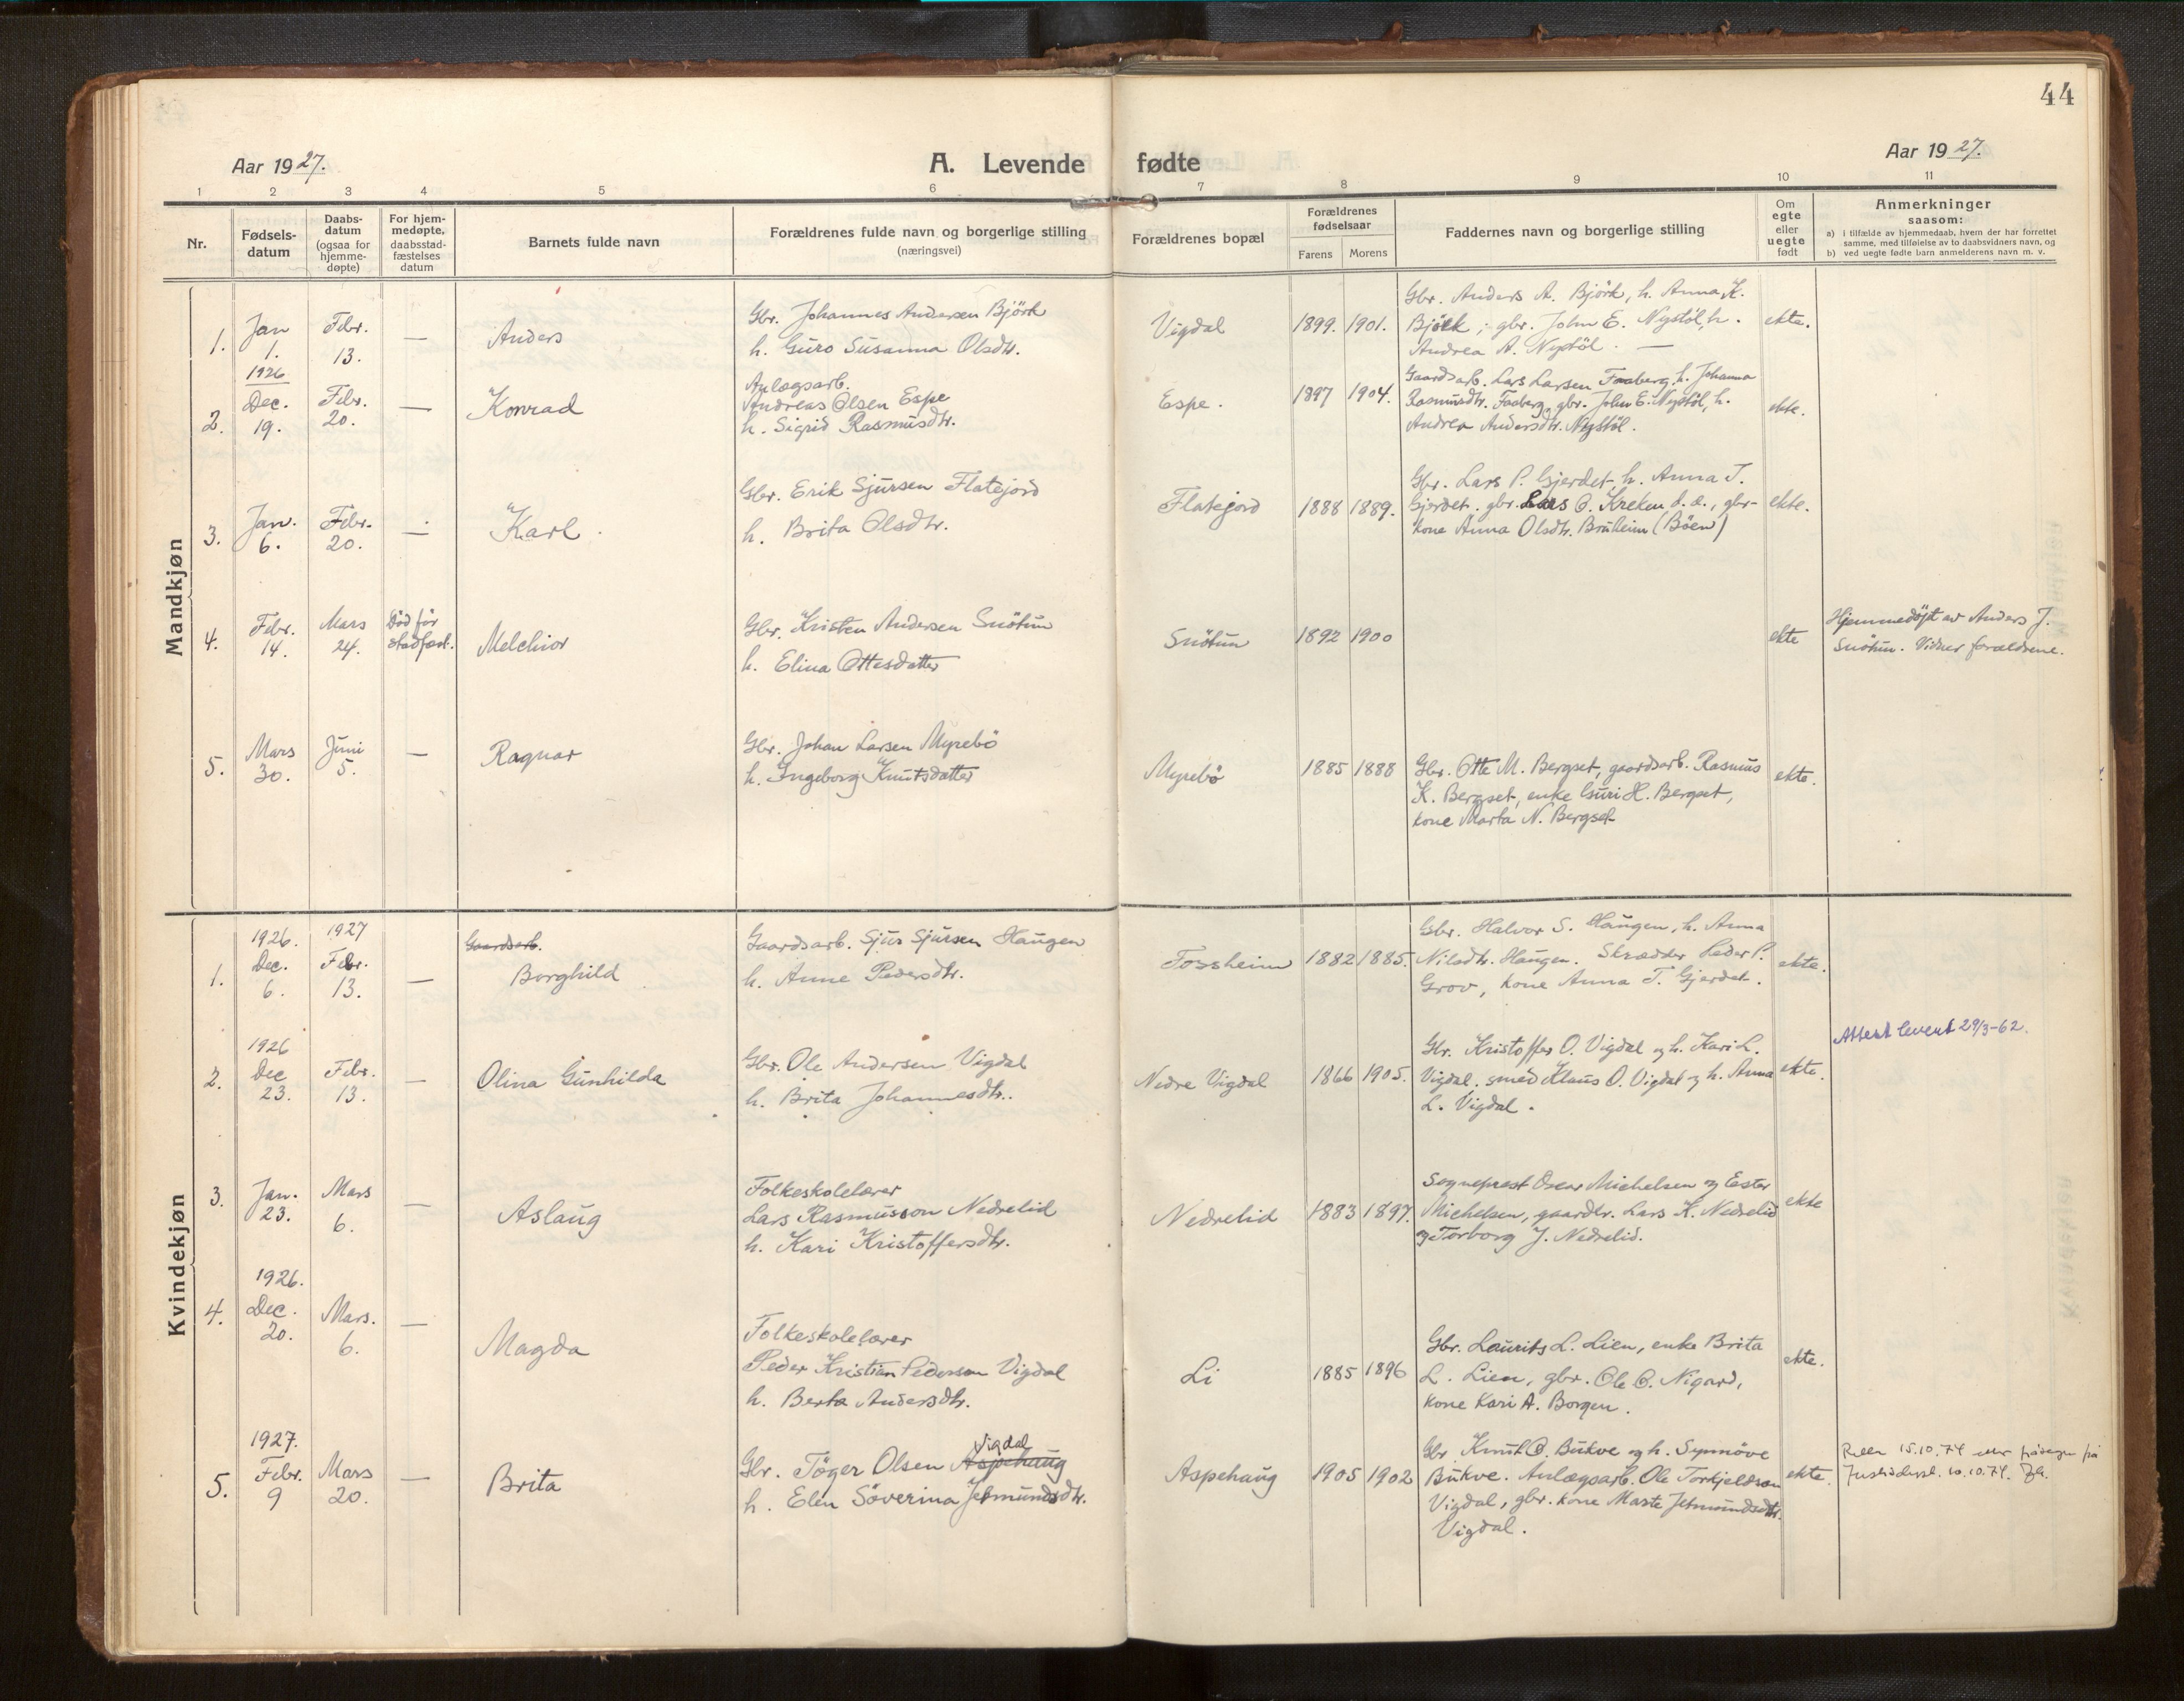 44
Aar 1927.
A. Levende fødte
Aar 1927.
1 2 3 4 5 6 7 8 9 10 11
Nr.
Fødsels-
datum
Daabs-
datum
(ogsaa for
hjemme-
døpte)
For hjem-
medøpte,
daabsstad-
fæstelses
datum
Barnets fulde navn
Forældrenes fulde navn og borgerlige stilling
(næringsvei)
Forældrenes bopæl
Forældrenes
fødselsaar
Farens Morens
Faddernes navn og borgerlige stilling
Om
egte
eller
uegte
født
Anmerkninger
saasom:
a) i tilfælde av hjemmedaab, hvem der har forrettet
samme, med tilføielse av to daabsvidners navn, og
b) ved uegte fødte barn anmelderens navn m. v.
Mandkjøn
1.
Jan
1.
Febr.
13.
—
Anders
Gbr. Johannes Andersen Björk
h. Guro Susanna Olsdtr.
Vigdal
1899. 1901.
Gbr. Anders A. Björk, h. Anna K.
Björk; gbr. John E. Nystöl, h.
Andrea A. Nystöl. —
ekte.
2.
1926
Dec.
19.
Febr.
20.
—
Konrad
Anlægsarb.
Andreas Olsen Espe
h. Sigrid Rasmusdtr.
Espe.
1897 1904.
Gaardsarb. Lars Larsen Faaberg, h. Johanna
Rasmusdtr. Faaberg, gbr. John E. Nystöl, h.
Andrea Andersdtr. Nystöl.
ekte.
3.
Jan.
6.
Febr.
20.
—
Karl
Gbr. Erik Sjursen Flatejord
h. Brita Olsdtr.
Flatejord
1888 1889.
Gbr. Lars P. Gjerdet, h. Anna T.
Gjerdet. gbr. Lars O. Kreken d. e., gbr-
kone Anna Olsdtr. Bruheim (Böen)
ekte.
4.
Febr.
14.
Mars
24.
Död før
stadfæst.
Melchior
Gbr. Kristen Andersen Snötun
h. Elina Ottesdatter
Snötun
1892 1900
ekte
Hjemmedöpt av Anders J.
Snötun. Vidner forældrene.
5.
Mars
30.
Juni
5.
—
Ragnar
Gbr. Johan Larsen Myrebö
h. Ingeborg Knutsdatter
Myrebö
1885 1888
Gbr. Otte M. Bergset, gaardsarb. Rasmus
K. Bergset, enke Guri H. Bergset,
kone Marta N. Bergset
ekte.
Kvindekjøn
1.
1926.
Dec.
6.
1927
Febr.
13.
—
Gaardsarb.
Borghild
Gaardsarb. Sjur Sjursen Haugen
h. Anne Pedersdtr.
Fossheim
1882 1885.
Gbr. Halvor S. Haugen, h. Anna
Nilsdtr. Haugen. Skrædder Peder P.
Grov, kone Anna T. Gjerdet.
ekte.
2.
1926
Dec
23.
Febr.
13.
—
Olina Gunhilda
Gbr. Ole Andersen Vigdal
h. Brita Johannesdtr.
Nedre Vigdal
1866 1905.
Gbr. Kristoffer O. Vigdal og h. Kari L.
Vigdal. smed Klaus O. Vigdal og h. Anna
L. Vigdal.
ekte.
Attest levert 29/3-62.
3.
Jan.
23.
Mars
6.
—
Aslaug
Folkeskolelærer
Lars Rasmusson Nedrelid
h. Kari Kristoffersdtr.
Nedrelid
1883 1897.
Sogneprest Oscar Michelsen og Ester
Michelsen, gaardbr. Lars K. Nedrelid
og Torborg J. Nedrelid.
ekte
4.
1926.
Dec.
20.
Mars.
6.
—
Magda
Folkeskolelærer
Peder Kristian Pederson Vigdal
h. Berta Andersdtr.
Li
1885 1896
Gbr. Laurits L. Lien, enke Brita
L. Lien, gbr. Ole O. Nigard,
kone Kari A. Borgen.
ekte.
5.
1927.
Febr.
9
Mars
20.
—
Brita
Gbr. Töger Olsen Aspehaug Vigdal
h. Elen Söverina Jetmundsdtr.
Aspehaug
1905 1902
Gbr. Knut O. Bukve og h. Synnöve
Bukve. Anlægsarb. Ole Torkjeldson
Vigdal, gbr. kone Marte Jetmundsdtr.
Vigdal.
ekte.
15.10.74
10.10.74.